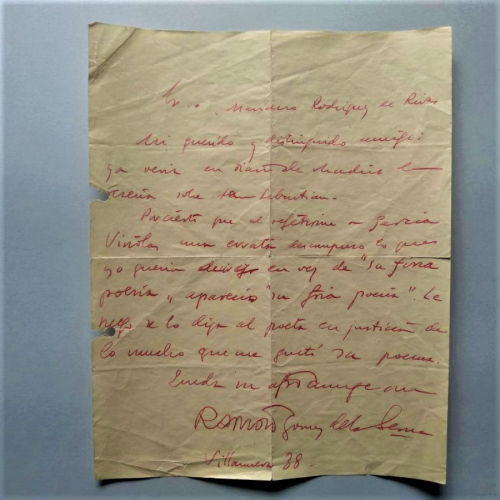 Sr. D. Mariano Rodríguez de Rivas
Mi querido y distinguido amigo:
ya vería en diario de Madrid la
reseña sobre San Sebastian.
Por cierto que al referirme a García
Viñolas una errata descompuso lo que
yo quería decir en vez de "su fina
poesía" apareció "su fría poesía". Le
ruego se lo diga al poeta en justicia de
lo mucho que me gustó su poema.
su
Ramón Gomez de la Serna
Villanueva 38.